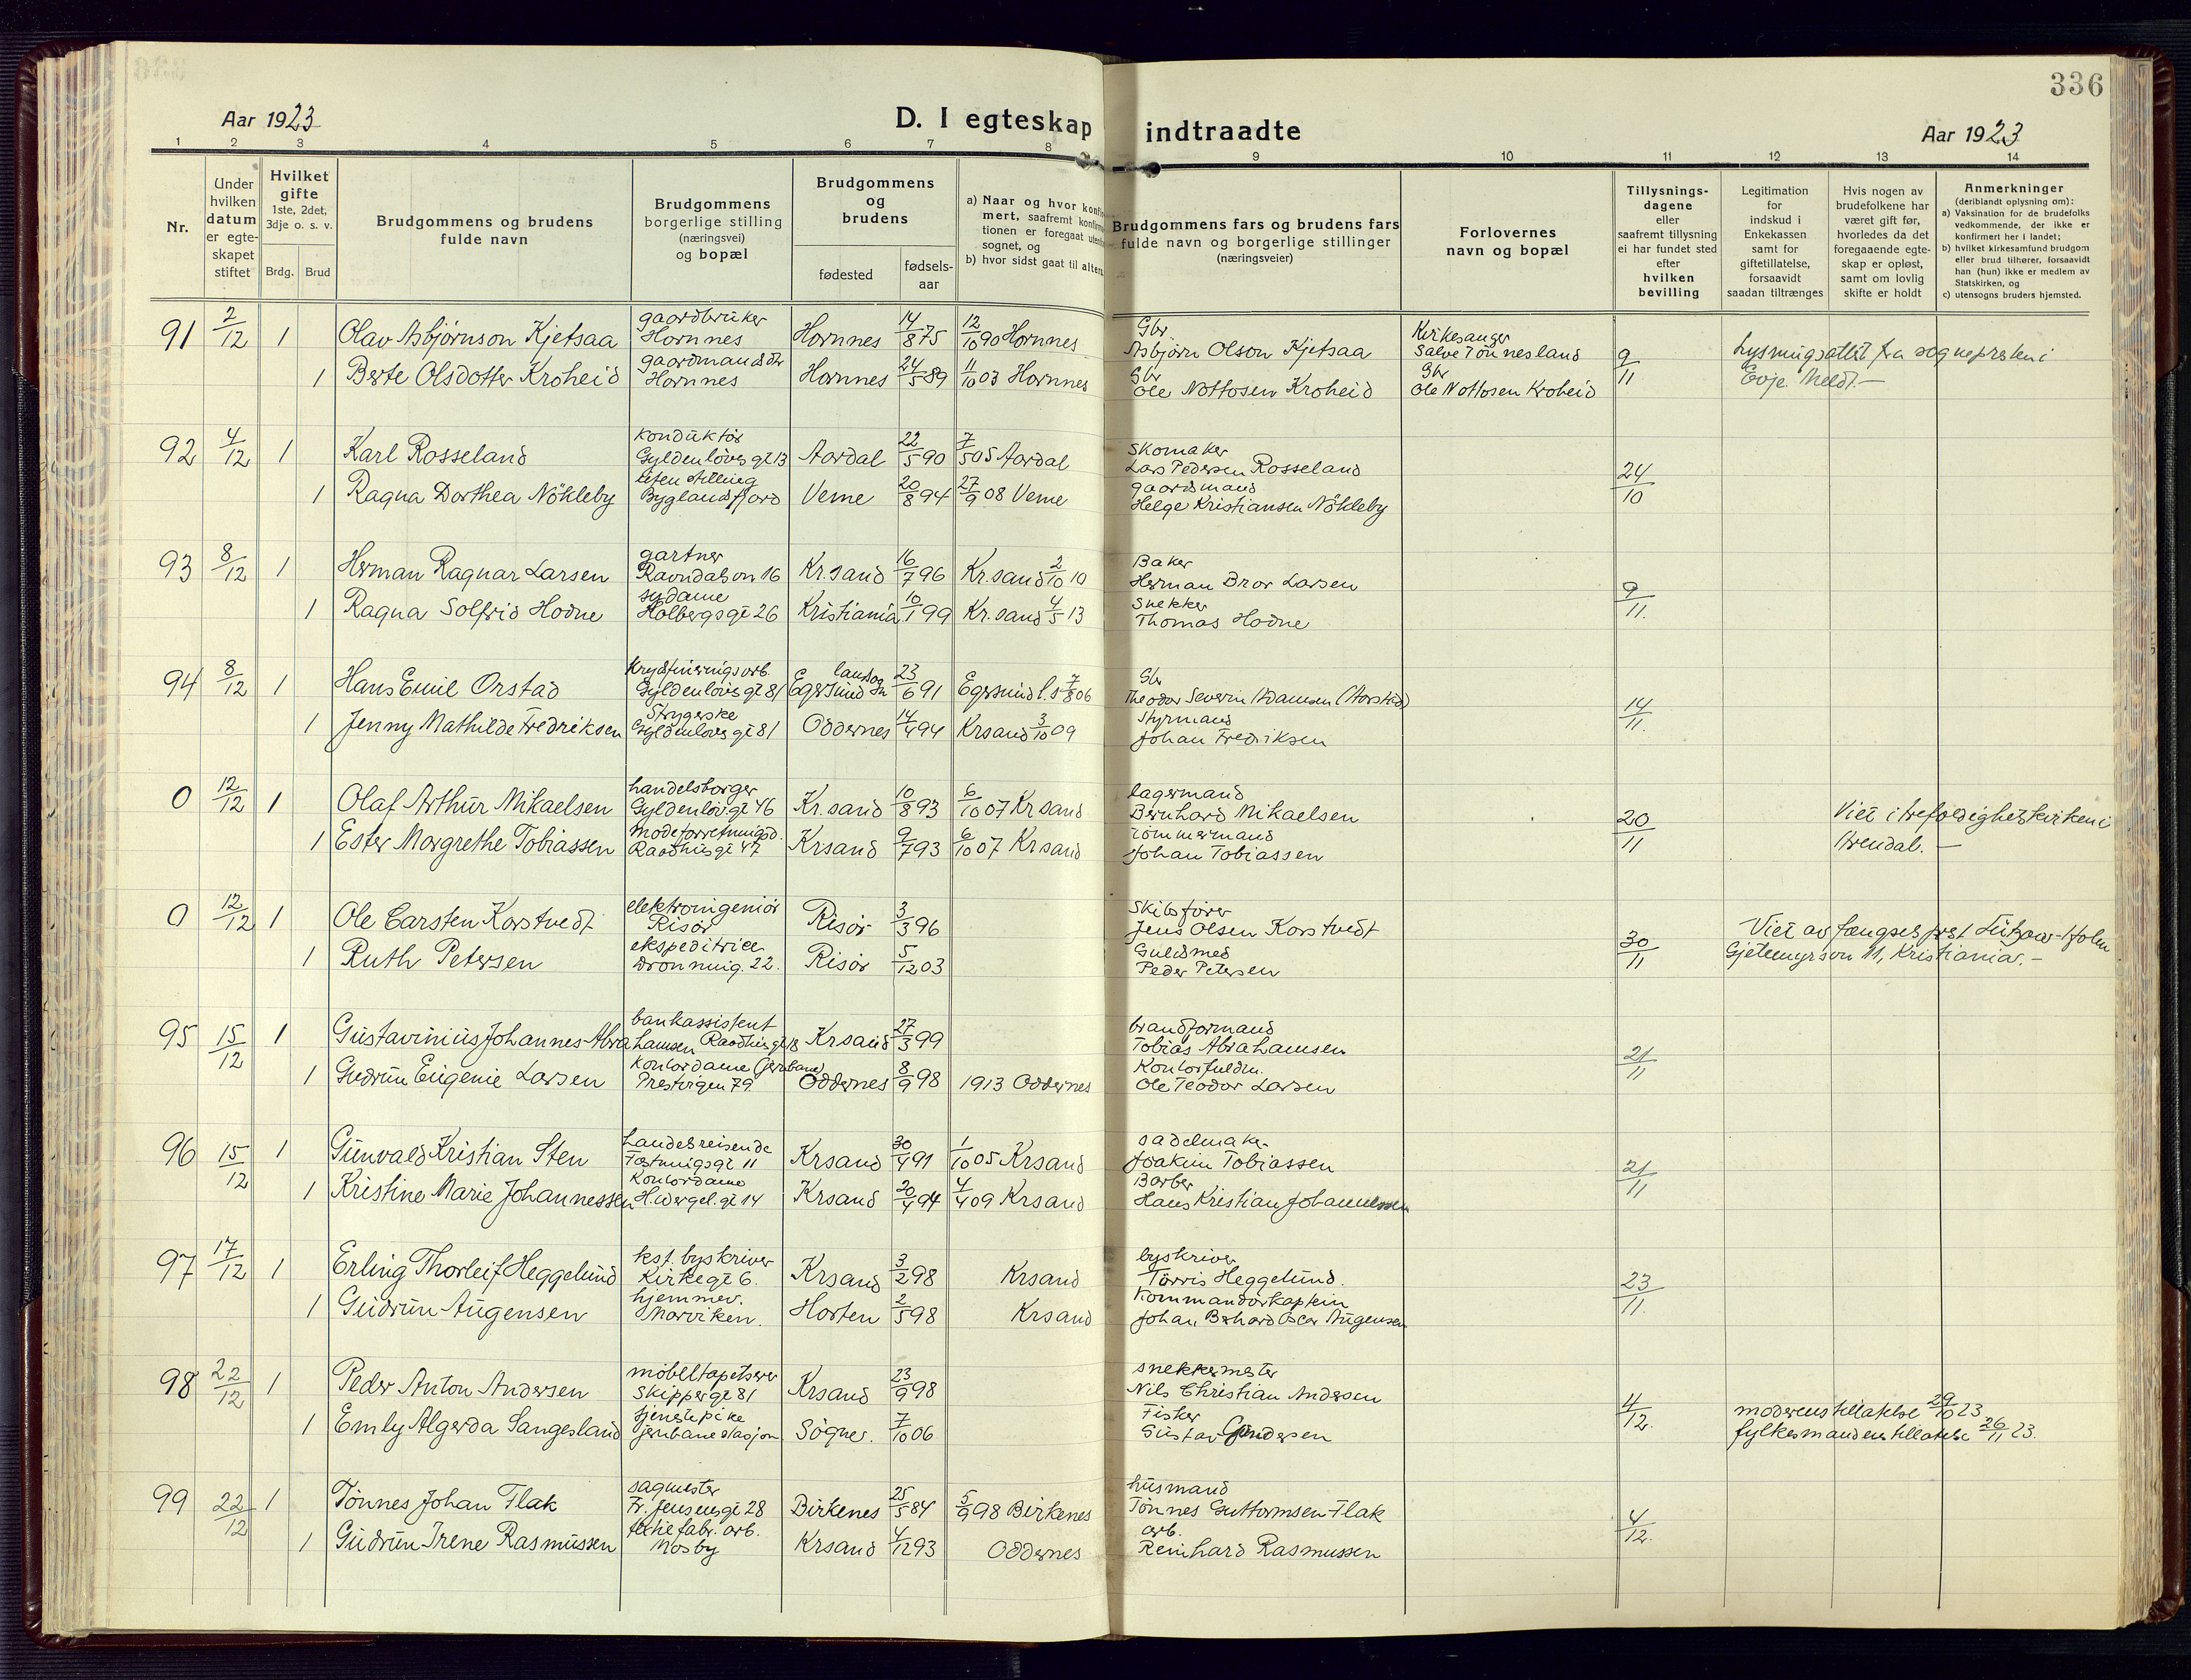 336
Aar 1923
D. I egteskap indtraadte
Aar 1923
1 2 3 4 5 6 7 8 9 10 11 12 13 14
Nr.
Under hvilken datum er egteskapet stiftet
Hvilket gifte 1ste, 2det, 3dje o. s. v.
Brdg. Brud
Brudgommens og brudens fulde navn
Brudgommens borgerlige stilling (næringsvei) og bopæl
Brudgommens og brudens
fødested fødselsaar
a) Naar og hvor konfirmert, saafremt konfirmationen er foregaat utenfor sognet, og
b) hvor sidst gaat til alters
Brudgommens fars og brudens fars fulde navn og borgerlige stillinger (næringsveier)
Forlovernes navn og bopæl
Tillysningsdagene eller saafremt tillysning ei har fundet sted efter hvilken bevilling
Legitimation for indskud i Enkekassen samt for giftetillatelse, forsaavidt saadan tiltrænges
Hvis nogen av brudefolkene har været gift før, hvorledes da det foregaaende egteskap er opløst, samt om lovlig skifte er holdt
Anmerkninger (deriblandt oplysning om):
a) Vaksination for de brudefolks vedkommende, der ikke er konfirmert her i landet;
b) hvilket kirkesamfund brudgom eller brud tilhører, forsaavidt han (hun) ikke er medlem av Statskirken, og
c) utensogns bruders hjemsted.
91 2/12 1 Olav Asbjørnson Kjetsaa gaardbruker Hornnes Hornnes 14/8 75 12/10 90 Hornnes Gbr Asbjørn Olson Kjetsaa Kirkesanger Salve Tønnesland 9/11 Lysningsattest fra sognepresten i
1 Berte Olsdotter Kroheid gaardmandsdtr Hornnes Hornnes 24/5 89 11/10 03 Hornnes Gbr Ole Nottosen Kroheid Gbr Ole Nottosen Kroheid Evje Meldt.—
92 4/12 1 Karl Rosseland konduktør Gyldenløves gt 13 Aardal 22/5 90 7/5 05 Aardal Skomaker Lars Pedersen Rosseland 24/10
1 Ragna Dorthea Nökleby uten stilling Byglandsfjord Verne 20/8 94 27/9 08 Verne gaardmand Helge Kristiansen Nökleby
93 8/12 1 Herman Ragnar Larsen gartner Ravndalsvn 16 Kr.sand 16/7 96 Kr.sand 2/10 10 Baker Herman Bror Larsen 9/11.
1 Ragna Solfrid Hodne sydame Holbergs gt 26 Kristiania 10/1 99 Kr.sand 4/5 13 Snekker Thomas Hodne
94 8/12 1 Hans Emil Orstad Gyldenløves gt 81 Egersund landsogn 23/6 91 Egersund l.s 7/8 06 Gbr Theodor Severin Adamsen (Aarstad) 14/11.
1 Jenny Mathilde Fredriksen Strygerske Gyldenløves gt 81 Oddernes 14/4 94 Krsand 3/10 09 Styrmand Johan Fredriksen
0 12/12 1 Olaf Arthur Mikaelsen handelsborger Gyldenløv.gt 46 Kr.sand 10/8 93 6/10 07 Krsand lagermand Bernhard Mikaelsen 20/11 Viet i trefoldighetskirken i
1 Ester Margrethe Tobiassen Moteforretningsd. Raadhusgt 47 Krsand 9/7 93 6/10 07 Krsand Tømmermand Johan Tobiassen Arendal.—
0 12/12 1 Ole Carsten Korstvedt elektroingeniør Risör Risör 3/3 96 Skibsfører Jens Olsen Korstvedt 30/11 Viet av fængselsprest Lützow-Holm
1 Ruth Petersen ekspeditrice Dronning. 22. Risör 5/12 03 Guldsmed Peder Petersen Gjetemyrsvn 11, Kristiania.—
95 15/12 1 Gustavinius Johannes Abrahamsen bankassistent Raadhusgt 18 Krsand 27/3 99 brandformand Tobias Abrahamsen 21/11
1 Gudrun Eugenie Larsen Kontordame (jernbane) Prestegen 79. Oddernes 8/9 98 1913 Oddernes Kontorfuldm. Ole Teodor Larsen
96 15/12 1 Gunvald Kristian Sten Handelsreisende Festningsgt 11 Krsand 30/4 91 1/10 05 Krsand sadelmaker Joakim Tobiassen 21/11
1 Kristine Marie Johannessen Kontordame gt 14 Krsand 20/4 94 4/4 09 Krsand Barber Hans Kristian Johannessen
97 17/12 1 Erling Thorleif Heggelund kst. byskriver Kirkegt 6. Krsand 3/2 98 Krsand byskriver Tørris Heggelund. 23/11.
1 Gudrun Augensen hjemmev. Marviken. Horten 2/5 98 Krsand Kommandørkaptein Johan Bernhard Oscar Augensen
98 22/12 1 Peder Anton Andersen møbeltapetserer Skippergt 81 Krsand 23/9 98 snekkermester Nils Christian Andersen 4/12. moderens tillatelse 29/10 23
1 Emly Algerda Langesland tjenestepike Jernbanestasjon Sögne. 7/10 06 Fisker Gustav Gundersen fylkesmandens tillatelse 26/11 23.
99 22/12 1 Tönnes Johan Flak sagmester Fr. Jensensgt 28 Birkenes 25/5 84 5/9 98 Birkenes husmand Tönnes Guttormsen Flak 4/12.
1 Gudrun Irene Rasmussen fabr. arb. Mosby Krsand 4/12 93 Oddernes arb. Reinhard Rasmussen